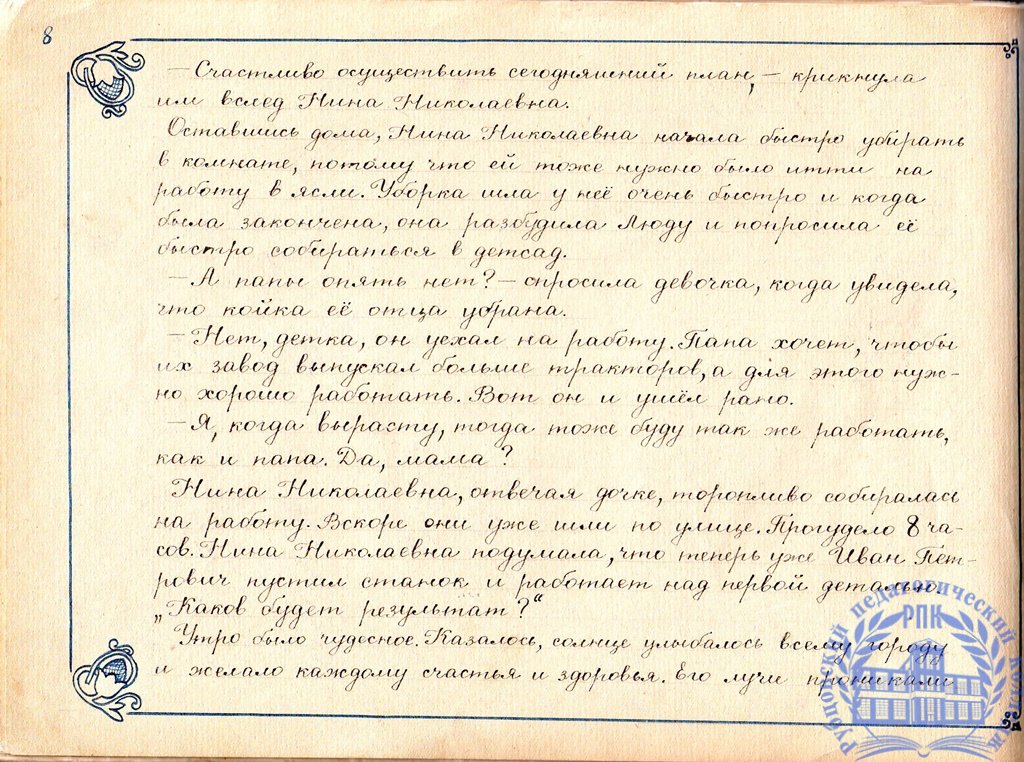 8
— Счастливо осуществить сегодняшний план, — крикнула
им вслед Нина Николаевна.
Оставшись дома, Нина Николаевна начала быстро убирать
в комнате, потому что ей тоже нужно было итти на
работу в ясли. Уборка шла у неё очень быстро и когда
была закончена, она разбудила Люду и попросила её
быстро собираться в детсад.
— А папы опять нет? — спросила девочка, когда увидела,
что койка её отца убрана.
— Нет, детка, он уехал на работу. Папа хочет, чтобы
их завод выпускал больше тракторов, а для этого нуж-
но хорошо работать. Вот он и ушёл рано.
— Я, когда вырасту, тогда тоже буду так же работать,
как и папа. Да, мама?
Нина Николаевна, отвечая дочке, торопливо собиралась
на работу. Вскоре они уже шли по улице. Прогудело 8 ча-
сов. Нина Николаевна подумала, что теперь уже Иван Пет-
рович пустил станок и работает над первой деталью.
„Каков будет результат?“
Утро было чудесное. Казалось, солнце улыбалось всему городу
и желало каждому счастья и здоровья. Его лучи проникали
Рубцовский педагогический колледж
РПК